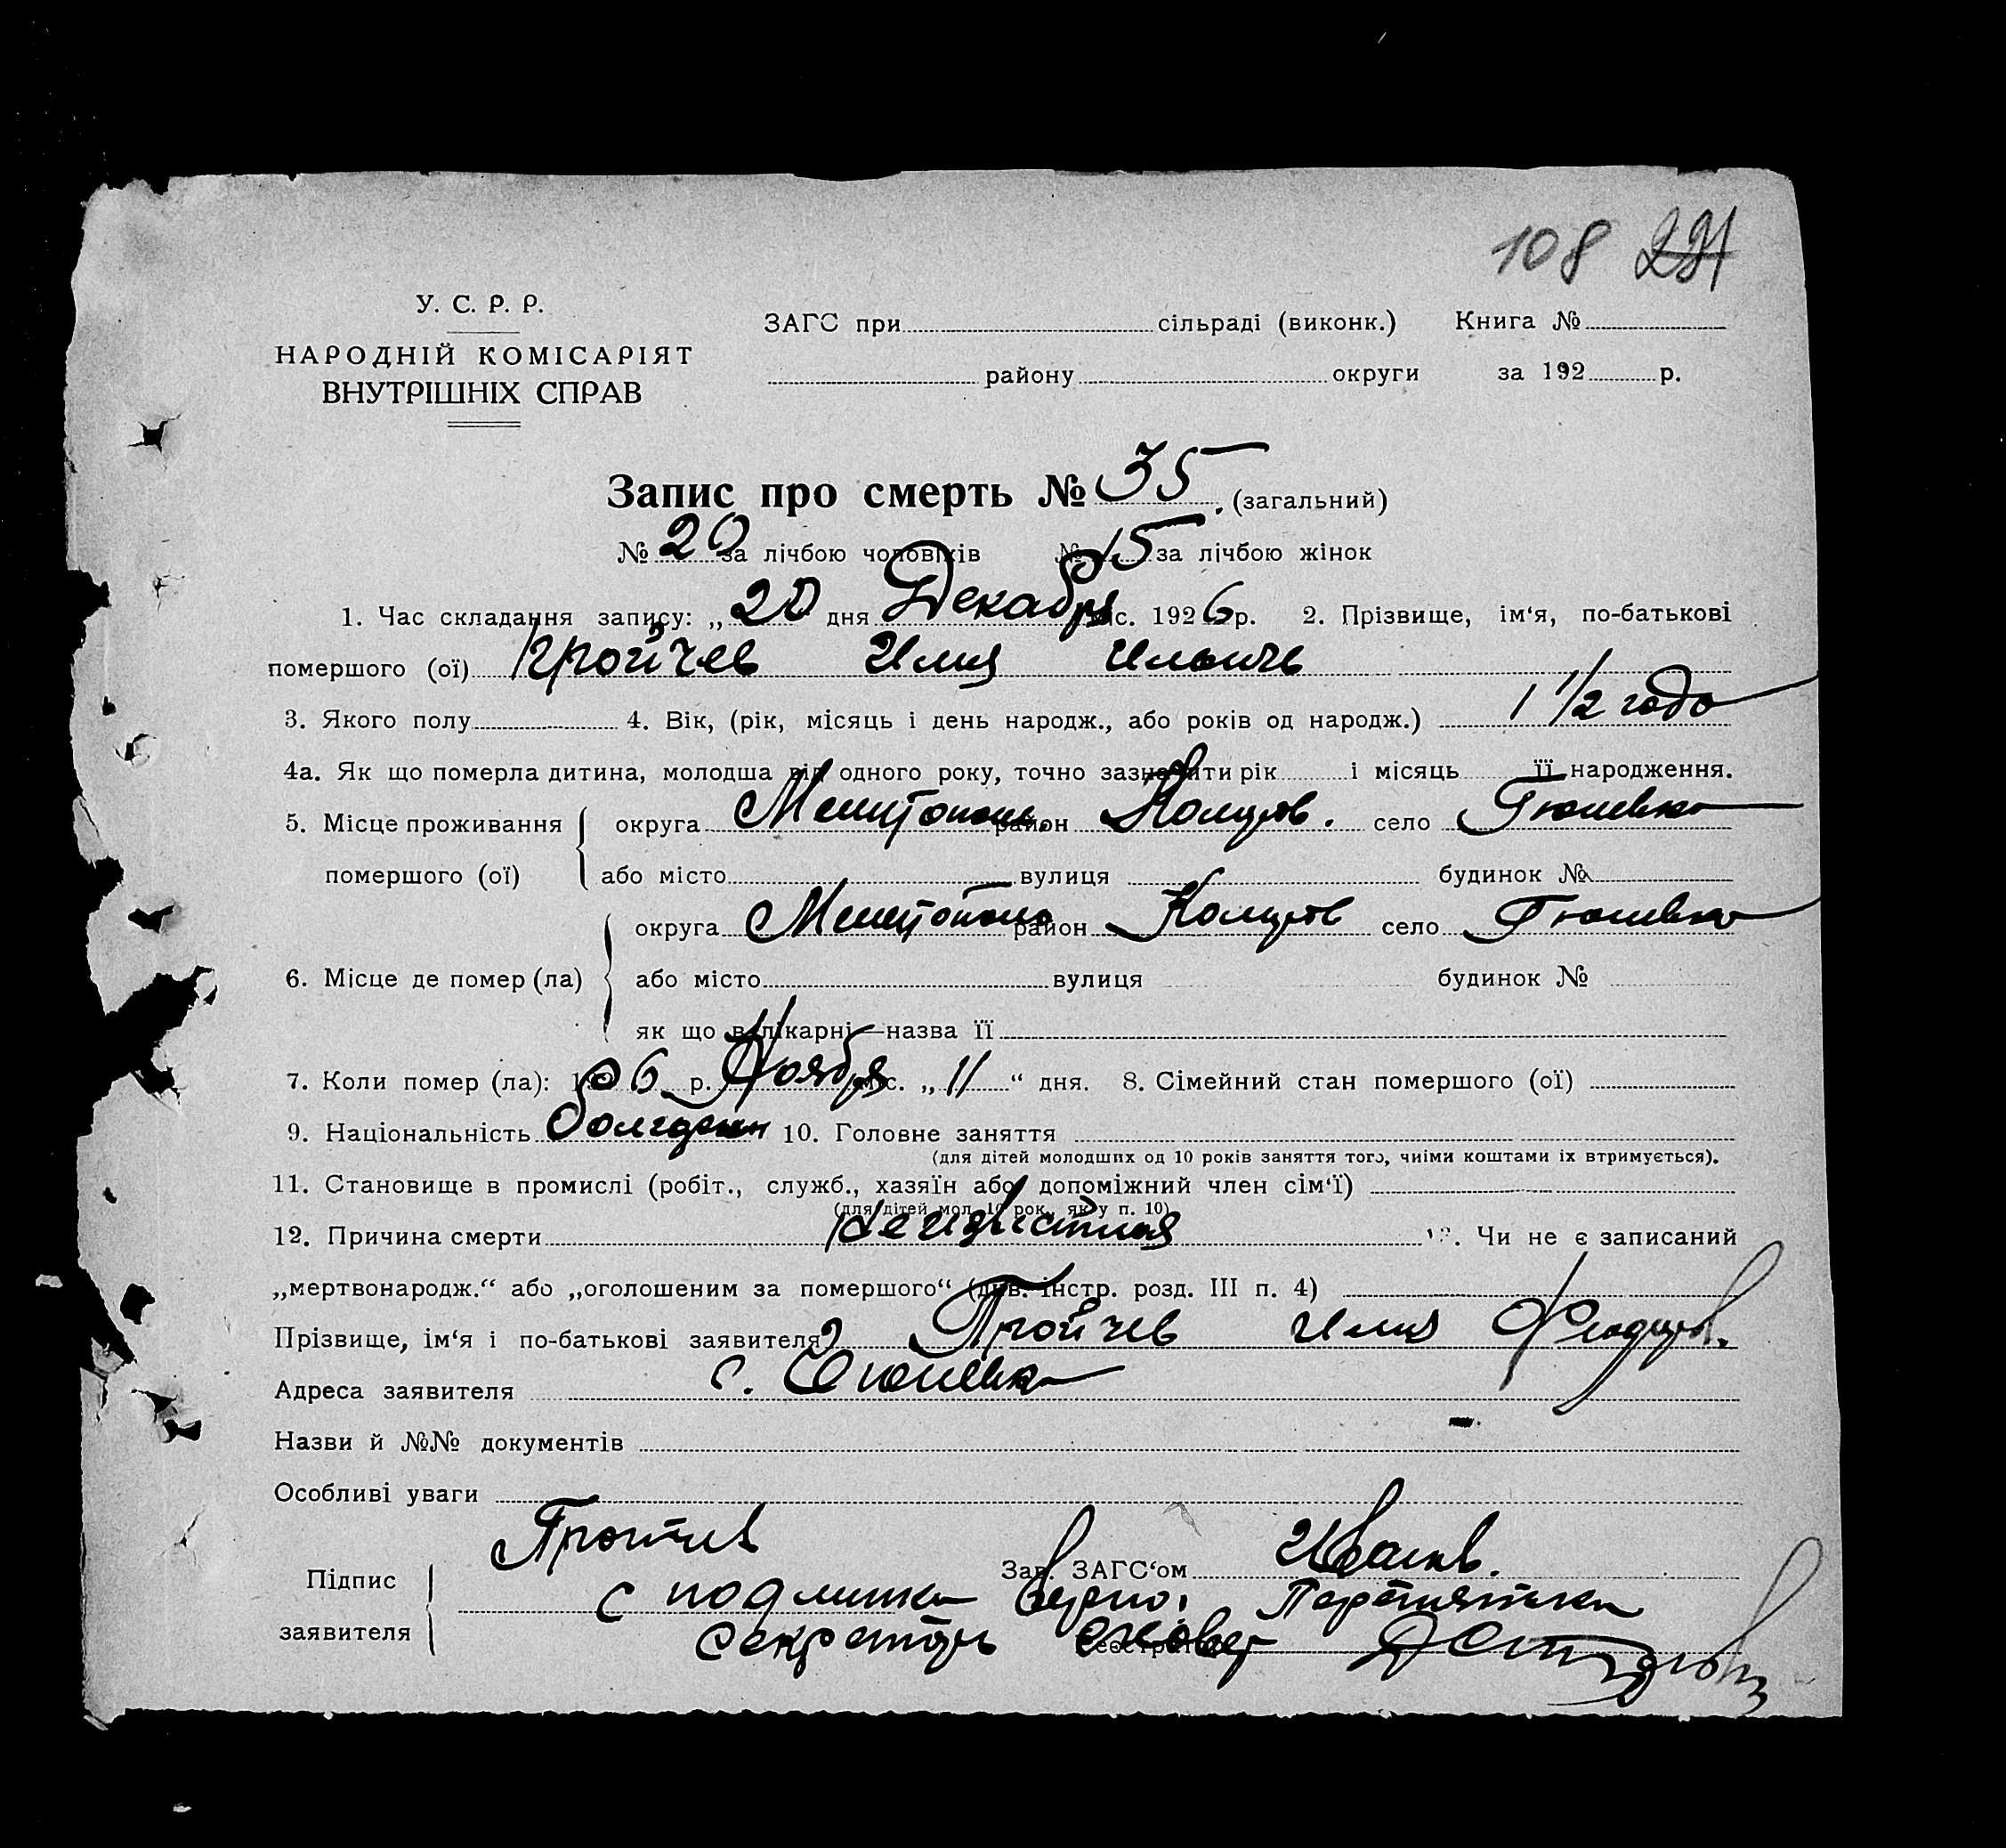 108 231
У. С. Р. Р.
НАРОДНІЙ КОМІСАРІЯТ
ВНУТРІШНІХ СПРАВ
ЗАГС при сільраді (виконк.) Книга №
району округи за 192 р.
Запис про смерть № 35. (загальний)
№ 20 за лічбою чоловіків № 15 за лічбою жінок
1. Час складання запису: „20 дня Декабря міс. 1926 р. 2. Прізвище, ім‘я, по-батькові
помершого (ої) Тройчев Илия Ильичь
3. Якого полу 4. Вік, (рік, місяць і день народж., або років од народж.) 1 1/2 года
4а. Як що померла дитина, молодша від одного року, точно зазначити рік і місяць її народження.
5. Місце проживання округа Мелитополь. район Коларов. село Гюневка
помершого (ої) або місто вулиця будинок №
округа Мелитополь район Коларов село Гюневка
6. Місце де помер (ла) або місто вулиця будинок №
як що в лікарні—назва її
7. Коли помер (ла): 1926 р. Ноября міс. „11“ дня. 8. Сімейний стан помершого (ої)
9. Національність болгарин 10. Головне заняття
(для дітей молодших од 10 років заняття того, чиїми коштами їх втримується).
11. Становище в промислі (робіт., служб., хазяїн або допоміжний член сім‘ї)
(для дітей мол. 10 рок., як у п. 10)
12. Причина смерти неизвестная 13. Чи не є записаний
„мертвонародж.“ або „оголошеним за помершого“ (див. інстр. розд. III п. 4)
Прізвище, ім‘я і по-батькові заявителя Тройчев Илия Феодоров.
Адреса заявителя с. Гюневка
Назви й №№ документів
Особливі уваги
Тройчев
Підпис Зав. ЗАГС‘ом Иванов.
заявителя с подлинном верно:
Секретарь